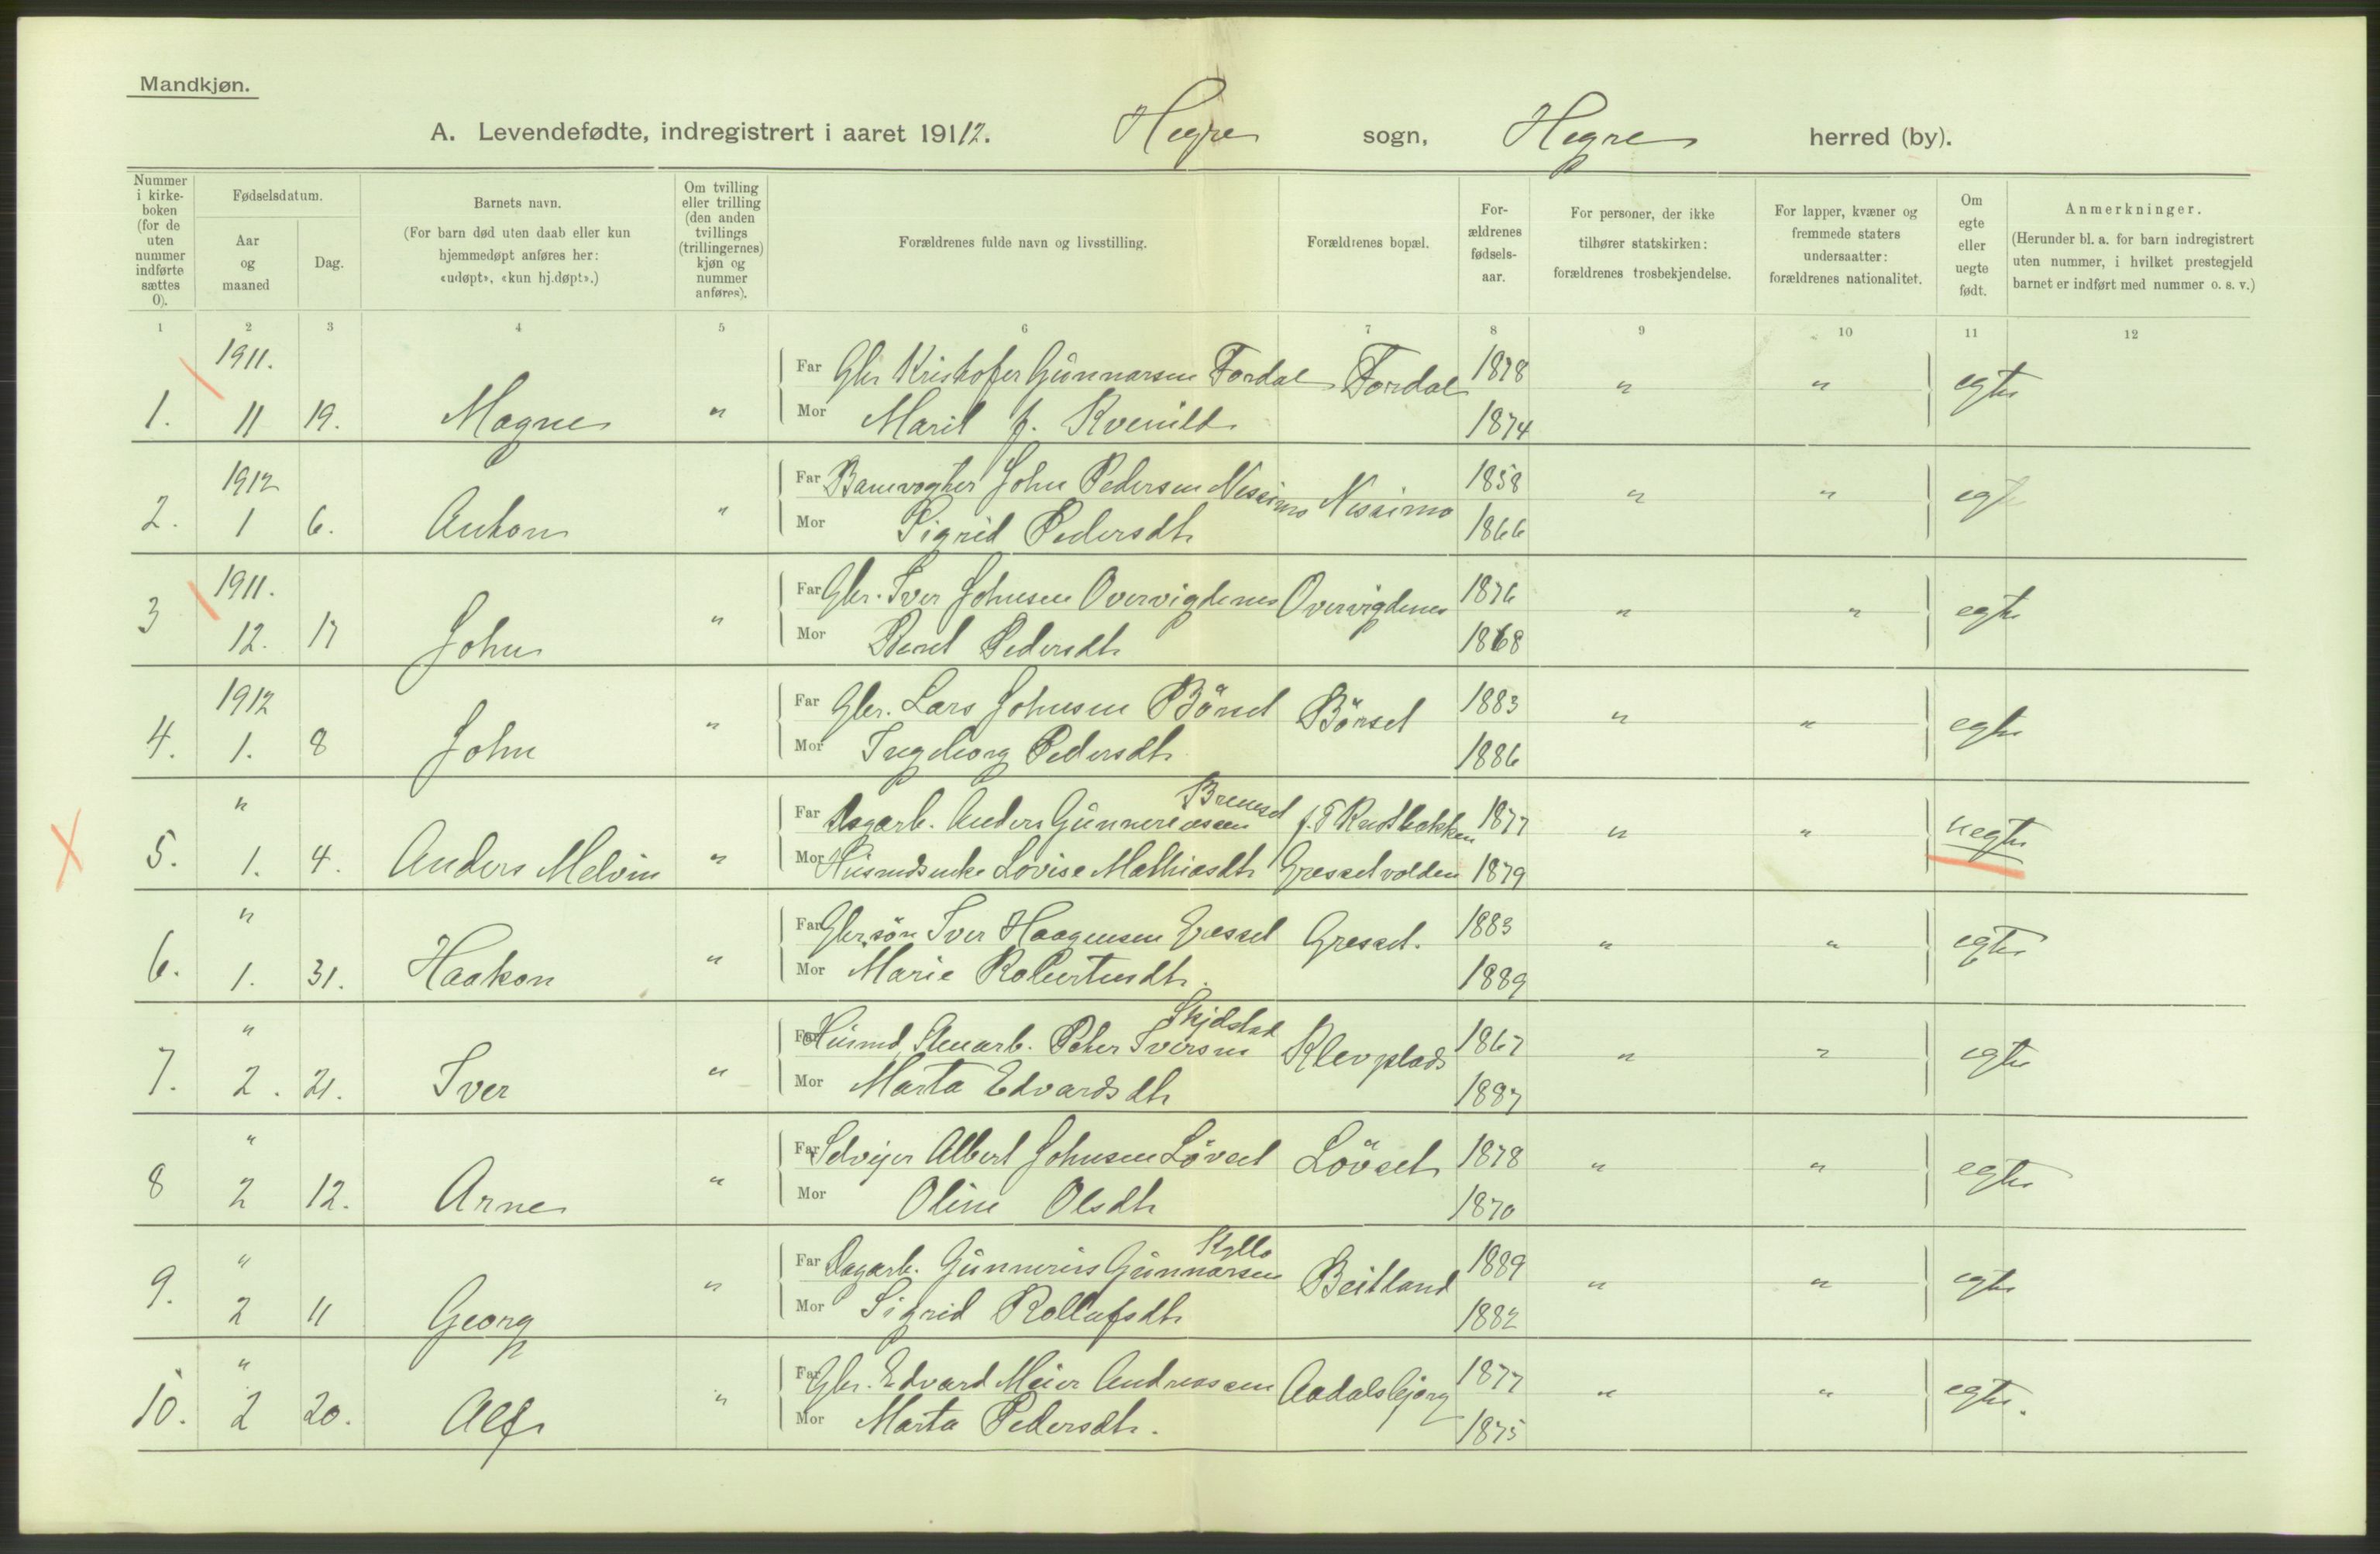 Mandkjøn.
A. Levendefødte, indregistrert i aaret 1912. Hegre sogn, Hegre herred (by).
Nummer i kirkeboken (for de uten nummer indførte sættes 0).
Fødselsdatum.
Aar og maaned
Dag.
Barnets navn.
(For barn død uten daab eller kun hjemmedøpt anføres her: «udøpt», «kun hj.døpt».)
Om tvilling eller trilling (den anden tvillings (trillingernes) kjøn og nummer anføres).
Forældrenes fulde navn og livsstilling.
Forældrenes bopæl.
Forældrenes fødselsaar.
For personer, der ikke tilhører statskirken: forældrenes trosbekjendelse.
For lapper, kvæner og fremmede staters undersaatter: forældrenes nationalitet.
Om egte eller uegte født.
Anmerkninger.
(Herunder bl. a. for barn indregistrert uten nummer, i hvilket prestegjeld barnet er indført med nummer o. s. v.)
1 2 3 4 5 6 7 8 9 10 11 12
1911.
Far Gbr Kristofer Gunnarsen Fordal Fordal 1878 " " egte
1. 11 19. Magne " Mor Marit f. Kvenild 1874
1912
Far Banevogter John Pedersen Nessimo Nessimo 1858 " " egte
2. 1 6. Anton " Mor Sigrid Pedersdtr 1866
1911.
Far Gbr. Iver Johnsen Overvigdenes Overvigdenes 1876 " " egte
3 12. 17 John " Mor Beret Pedersdtr 1868
1912
Far Gbr. Lars Johnsen Børset Børset 1883 " " egte
4. 1. 8 John " Mor Ingeborg Pedersdtr 1886
" Bremset
Far Dagarb. Anders Gunneriussen 1877 " " uegte
5. 1. 4. Anders Melvin " Mor Lovise Mathiasdtr Gressetvolden 1879
"
Far Gbr.søn Iver Haagensen Gresset. 1883 " " egte
6. 1. 31. Haakon " Mor Marie Robertusdtr. 1889
" Skjelstad
Far Husmd. Stenarb. Peter Iversen Klevplads 1867 " " egte
7. 2. 21. Iver " Mor Marta Edvardsdtr 1887
"
Far Selveier Albert Johnsen Løvset Løvset 1878 " " egte
8 2 12. Arne " Mor Oline Olsdtr 1870
" Kyllo
Far Dagarb. Gunnerius Gunnarsen Beitland 1889 " " egte
9. 2 11 Georg " Mor Sigrid Rollafsdtr 1882
"
Far Gbr. Edvard Meier Andreassen Aadalsbjørg 1877 " " egte.
10. 2 20. Alf " Mor Marta Pedersdtr. 1875